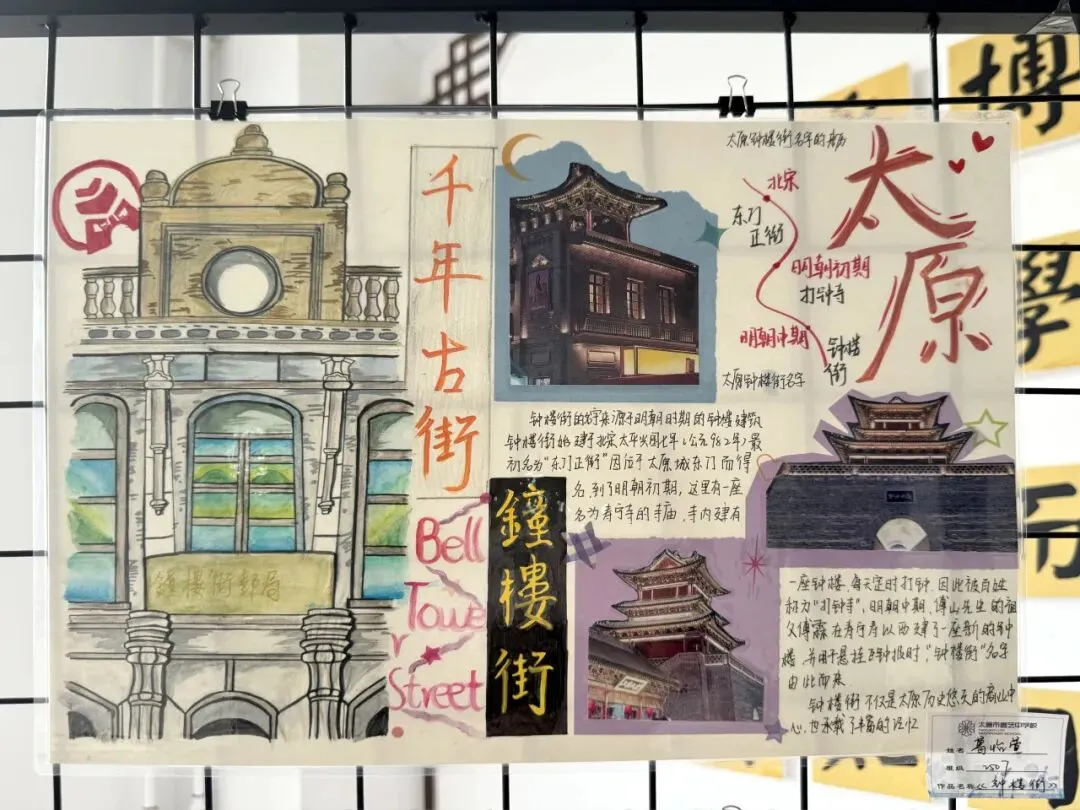 千年古街
Bell
Towe
r
Street
鐘樓街
鐘樓街郵局
太原钟楼街名字的来历
北宋
东门
正街
明朝初期
打钟寺
明朝中期
钟楼
街
太原钟楼街名字
太原
钟楼街的名字来源于明朝时期的钟楼建筑
钟楼街始建于北宋太平兴国七年(公元982年)最
初名为"东门正街"因位于太原城东门而得
名,到了明朝初期,这里有一座
名为寿宁寺的寺庙,寺内建有
一座钟楼,每天定时打钟,因此被百姓
称为"打钟寺",明朝中期,傅山先生的祖
父傅霖在寿宁寺以西建了一座新的钟
楼,并用于悬挂巨钟报时,"钟楼街"名字
由此而来
钟楼街不仅是太原历史悠久的商业中
心,也承载了丰富的记忆
姓名
班级 2507
作品名称《钟楼街》
博
學